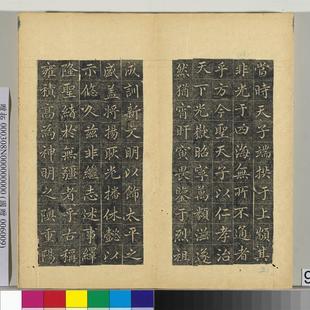 當時天子端拱于上顒其
非光于四海無所不通者
乎方今聖天子以仁孝治
天下光敷昭宇萬類滋遂
然猶宵旰寅畏鑒于烈祖
成訓新文明以飾太平之
盛美將揚厥光播休懿以
示悠久茲非繼志述事繹
隆聖緒於無疆者乎古稱
雍積高為神明之隩重陽